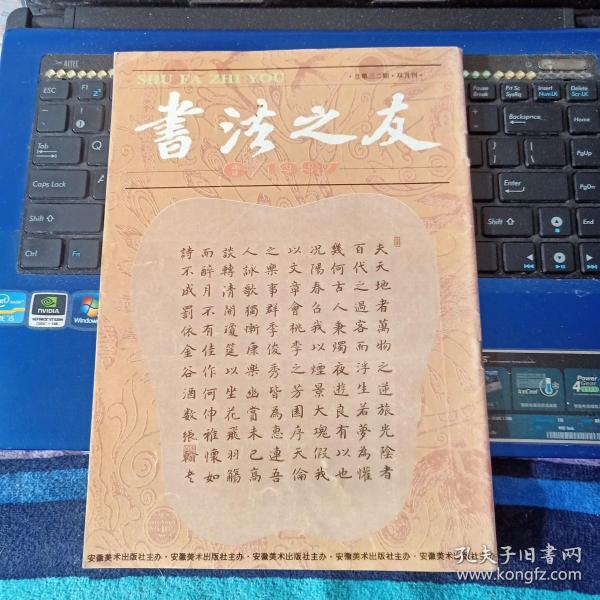 SHU FA ZHI YOU
·总第三二期·双月刊·
書法之友
6/1997
夫天地者萬物之逆旅光陰者
百代之過客而浮生若夢為懽
幾何古人秉燭夜遊良有以也
况陽春召我以煙景大塊假我
以文章會桃李之芳園序天倫
之樂事群季俊秀皆為惠連吾
人詠歌獨慚康樂幽賞未已高
談轉清開瓊筵以坐花飛羽觴
而醉月不有佳作何伸雅懷如
詩不成罰依金谷酒數
安徽美术出版社主办·安徽美术出版社主办·安徽美术出版社主办·安徽美术出版社主办·安徽美术出版社主办
ESC
F1
Tab
Caps Lock
Shift
Ctrl
Fn
Pause
Break
Prt Sc
SysRq
Insert
NumLK
Delete
ScrLK
Backspace
Home
PgUp
Enter
PgDn
Shift
End
intel
NVIDIA
Windows
IceCool
Power
4Gear
孔夫子旧书网
www.kongfz.com